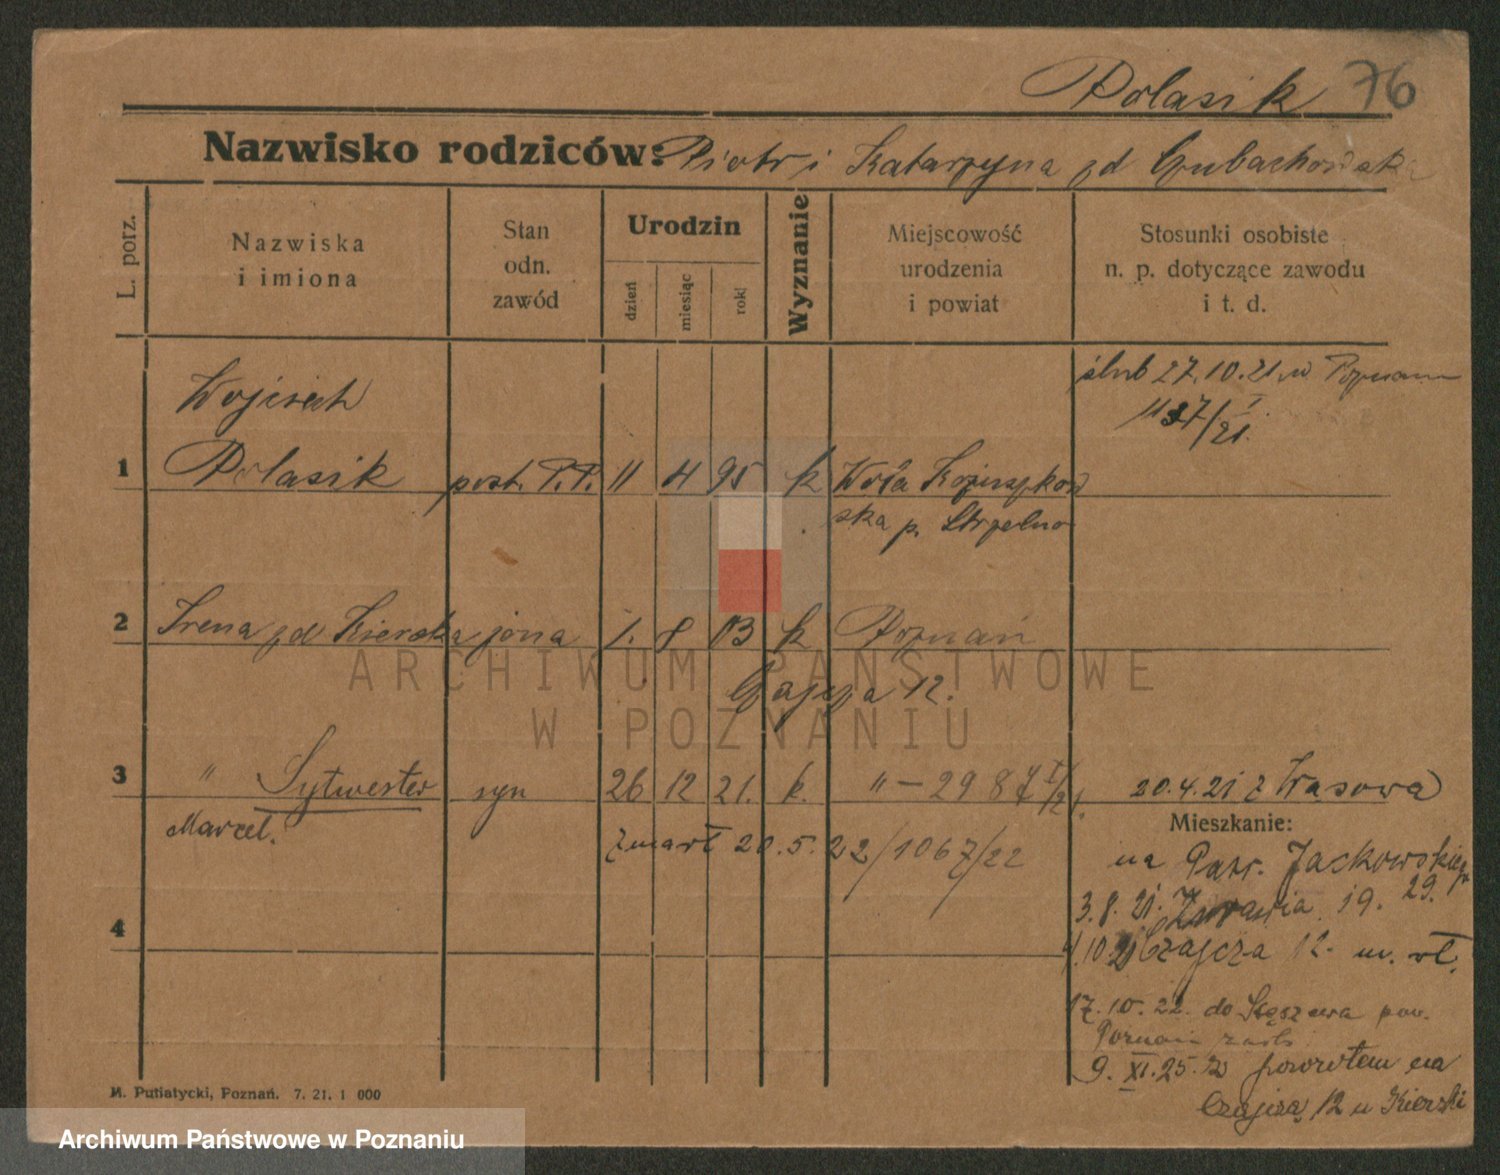 Polasik 76
Nazwisko rodziców: Piotr i Katarzyna zd Grubachowska
L. porz.
Nazwiska
i imiona
Stan
odn.
zawód
Urodzin
dzień
miesiąc
rok
Wyznanie
Miejscowość
urodzenia
i powiat
Stosunki osobiste
n. p. dotyczące zawodu
i t. d.
ślub 27.10.21 w Poznaniu
1137/I 21.
Wojciech
1 Polasik post. P.P. 11 4 95 k Wola Kożuszkow
ska p. Strzelno
2 Irena zd Kierska żona 1. 8 03 k Poznań
Czajcza 12.
3 " Sylwester syn 26 12 21. k. " — 2987 I/21.
Marcel.
zmarł 20.5.22/1067/22
20.4.21 z Wąsowa
Mieszkanie:
na Patr. Jackowskiego
29.
3.8.21. Żurawia 19.
4/10.21 Czajcza 12. m. wł.
17.10.22 do Stęszewa pow.
Poznań
9. XI.25. z powrotem na
Czajczą 12 u Kierski
4
M. Putiatycki, Poznań. 7. 21. 1 000
ARCHIWUM PAŃSTWOWE
W POZNANIU
Archiwum Państwowe w Poznaniu